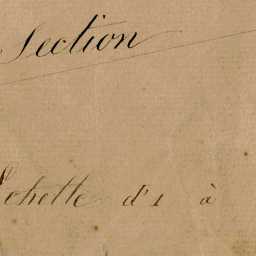 Section
Echelle d'1 à